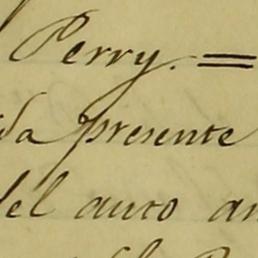 Perry. =
da presente
del auto an